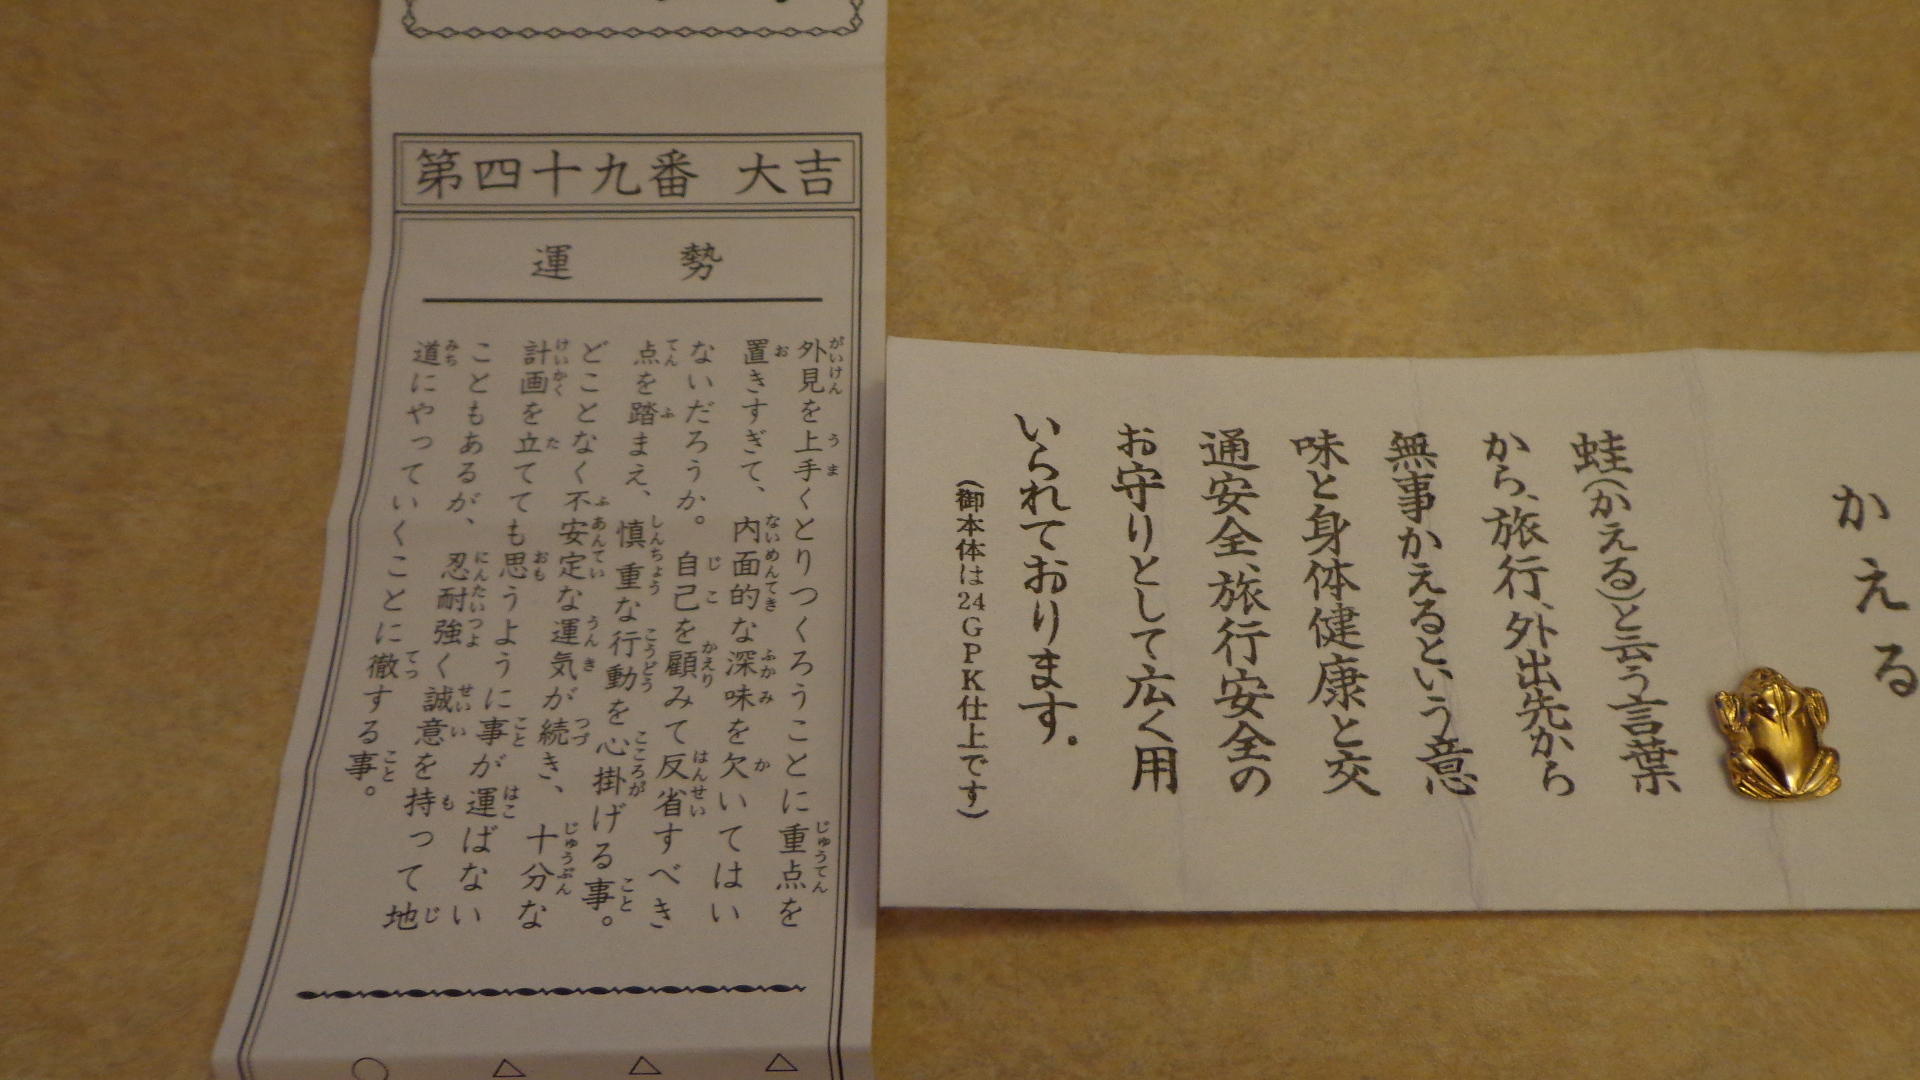 第四十九番 大吉
運勢
外見を上手くとりつくろうことに重点を
置きすぎて、内面的な深味を欠いてはい
ないだろうか。自己を顧みて反省すべき
点を踏まえ、慎重な行動を心掛げる事。
どことなく不安定な運気が続き、十分な
計画を立てても思うように事が運ばない
こともあるが、忍耐強く誠意を持って地
道にやっていくことに徹する事。
かえる
蛙(かえる)と云う言葉
から、旅行、外出先から
無事かえるという意
味と身体健康と交
通安全、旅行安全の
お守りとして広く用
いられております。
(御本体は24GPK仕上です)